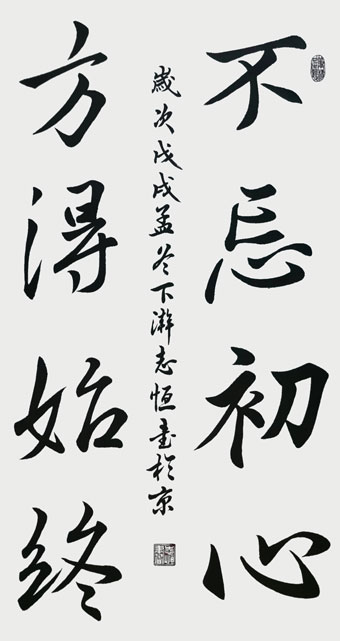 不忘初心
方得始终
歲次戊戌孟冬下澣志恒書於京